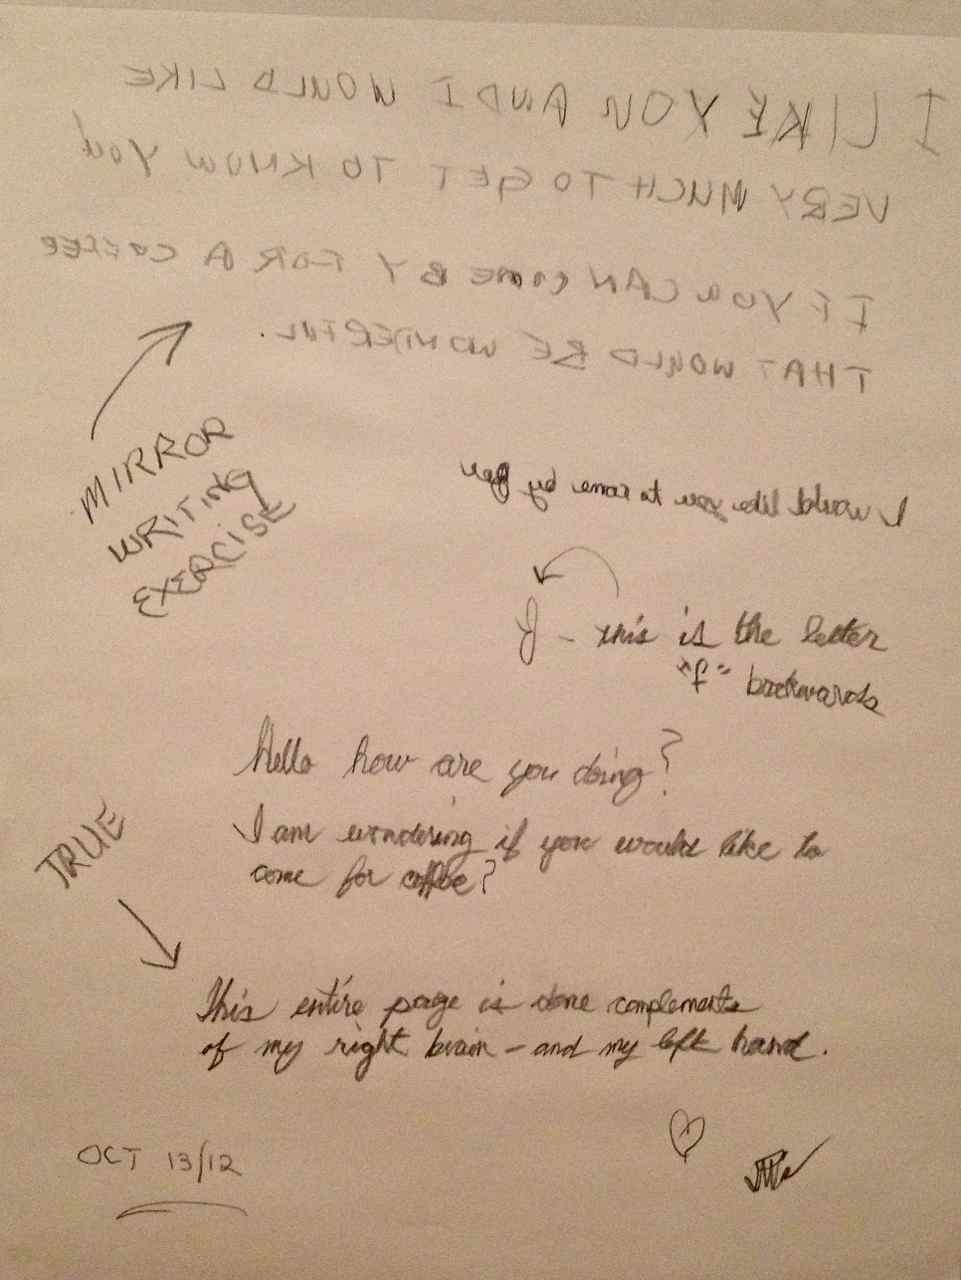 I LIKE YOU AND I WOULD LIKE
VERY MUCH TO GET TO KNOW YOU
IF YOU CAN COME BY FOR A COFFEE
THAT WOULD BE WONDERFUL.
MIRROR
WRITING
EXERCISE
I would like you to come by
this is the letter
"f" backwards
Hello how are you doing?
I am wondering if you would like to
come for coffee?
TRUE
This entire page is done complements
of my right brain - and my left hand.
OCT 13/12